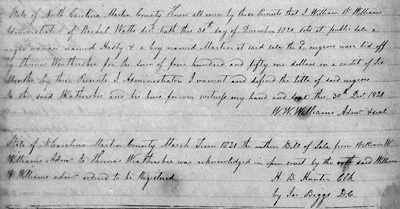 State of North Carolina Martin County Know all men by these Presents that I William W Williams
Administrator of Rachel Watts decd hath this 30th day of December 1820 sold at public sale a
negro woman named Hasty & a boy named Marlow at said sale the 2 negroes were bid off
by Thomas Weathersbee for the sum of four hundred and fifty one dollars on a credit of six
Months by these Presents I Administrator I warrant and defend the title of said negroes
to the said Weathersbee and his heirs forever witness my hand and seal this 30th Decr 1820
W. W. Williams Admr seal
State of N Carolina Martin County March Term 1821 the within Bill of Sale from William W
Williams Admr to Thomas Weathersbee was acknowledged in open court by the said William
W Williams admr ordered to be Registered
H. D. Hunter Clk
by Jos. Biggs D.C.